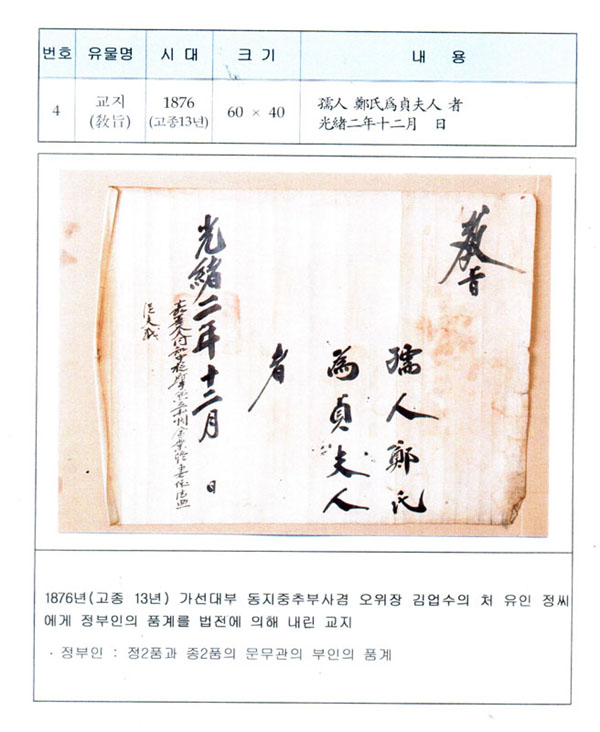 번호 유물명 시 대 크 기 내 용
4 교지 (敎旨) 1876 (고종13년) 60 × 40 孺人 鄭氏爲貞夫人 者
光緖二年十二月 日
敎旨
孺人鄭氏
爲貞夫人
者
光緖二年十二月 日
從夫職
1876년(고종 13년) 가선대부 동지중추부사겸 오위장 김업수의 처 유인 정씨
에게 정부인의 품계를 법전에 의해 내린 교지
· 정부인 : 정2품과 종2품의 문무관의 부인의 품계